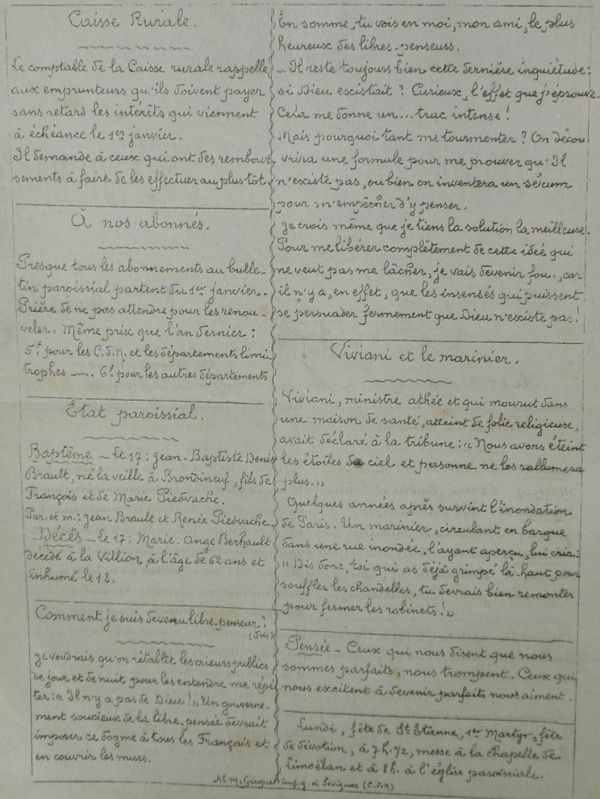 Caisse Rurale.
Le comptable de la Caisse rurale rappelle
aux emprunteurs qu'ils doivent payer
sans retard les intérêts qui viennent
à échéance le 1er janvier.
Il demande à ceux qui ont des rembour
sements à faire de les effectuer au plus tôt.
À nos abonnés.
Presque tous les abonnements au bulle-
tin paroissial partent du 1er janvier.
Prière de ne pas attendre pour les renou-
veler. Même prix que l'an dernier:
5f pour les C.d.N. et les départements limi
trophes —. 6f pour les autres départements
État paroissial.
Baptême – Le 17: Jean-Baptiste Denis
Brault, né la veille à Brondineuf, fils de
François et de Marie Piedvache.
Par. et m.: Jean Brault et Renée Piedvache
Décès – le 17: Marie-Ange Berhault
décédé à la Villion à l'âge de 62 ans et
inhumé le 18.
Comment je suis devenu libre-penseur?
(Suite)
Je voudrais qu'on rétablît les crieurs publics
de jour et de nuit pour les entendre me répé
ter: « Il n'y a pas de Dieu! » Un gouverne-
ment soucieux de la libre-pensée devrait
imposer ce dogme à tous les Français et
en couvrir les murs.
En somme, tu vois en moi, mon ami, le plus
heureux des libres-penseurs.
– Il reste toujours bien cette dernière inquiétude:
si Dieu existait? Curieux, l'effet que j'éprouve.
Cela me donne un... trac intense!
Mais pourquoi tant me tourmenter? On décou
vrira une formule pour me prouver qu'Il
n'existe pas, ou bien on inventera un sérum
pour m'empêcher d'y penser.
Je crois même que je tiens la solution la meilleure.
Pour me libérer complètement de cette idée qui
ne veut pas me lâcher, je vais devenir fou.. car
il n'y a, en effet, que les insensés qui puissent
se persuader fermement que Dieu n'existe pas!
Viviani et le marinier.
Viviani, ministre athée et qui mourut dans
une maison de santé, atteint de folie religieuse,
avait déclaré à la tribune: « Nous avons éteint
les étoiles du ciel et personne ne les rallumera
plus.. »
Quelques années après survint l'inondation
de Paris. Un marinier, circulant en barque
dans une rue inondée, l'ayant aperçu, lui cria:
« Dis donc, toi qui as déjà grimpé là-haut pour
souffler les chandelles, tu devrais bien remonter
pour fermer les robinets! »
Pensée – Ceux qui nous disent que nous
sommes parfaits, nous trompent. Ceux qui
nous excitent à devenir parfaits nous aiment.
Lundi, fête de St Etienne, 1er Martyr, fête
de dévotion, à 7h. 1/2, messe à la chapelle de
Limoëlan et à 8h. à l'église paroissiale.
à Sévignac (C.d.N)